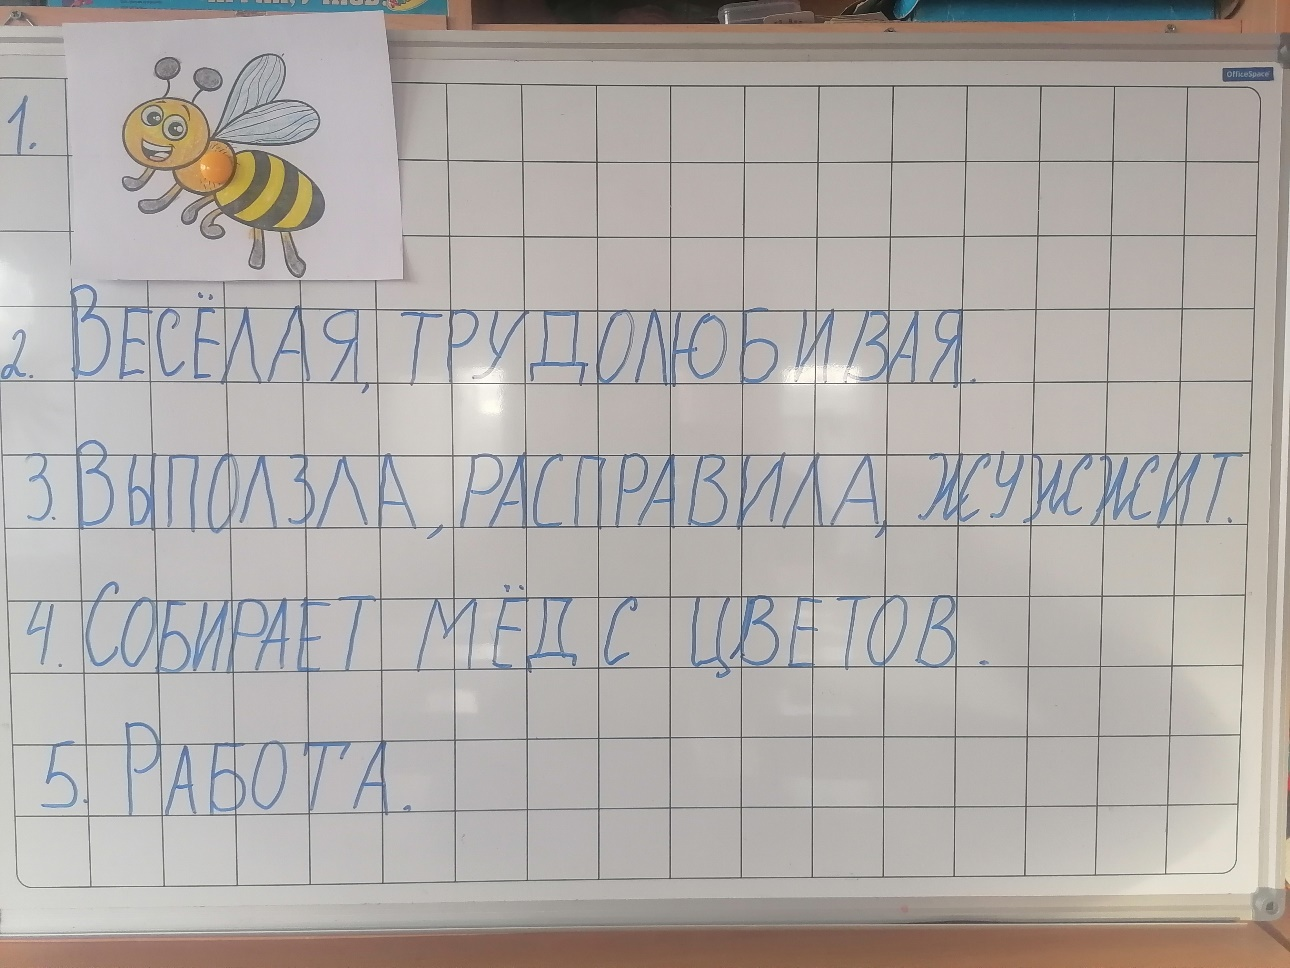 OfficeSpace
1.
2. ВЕСЁЛАЯ, ТРУДОЛЮБИВАЯ.
3. ВЫПОЛЗЛА, РАСПРАВИЛА, ЖУЖЖИТ.
4. СОБИРАЕТ МЁД С ЦВЕТОВ.
5. РАБОТА.